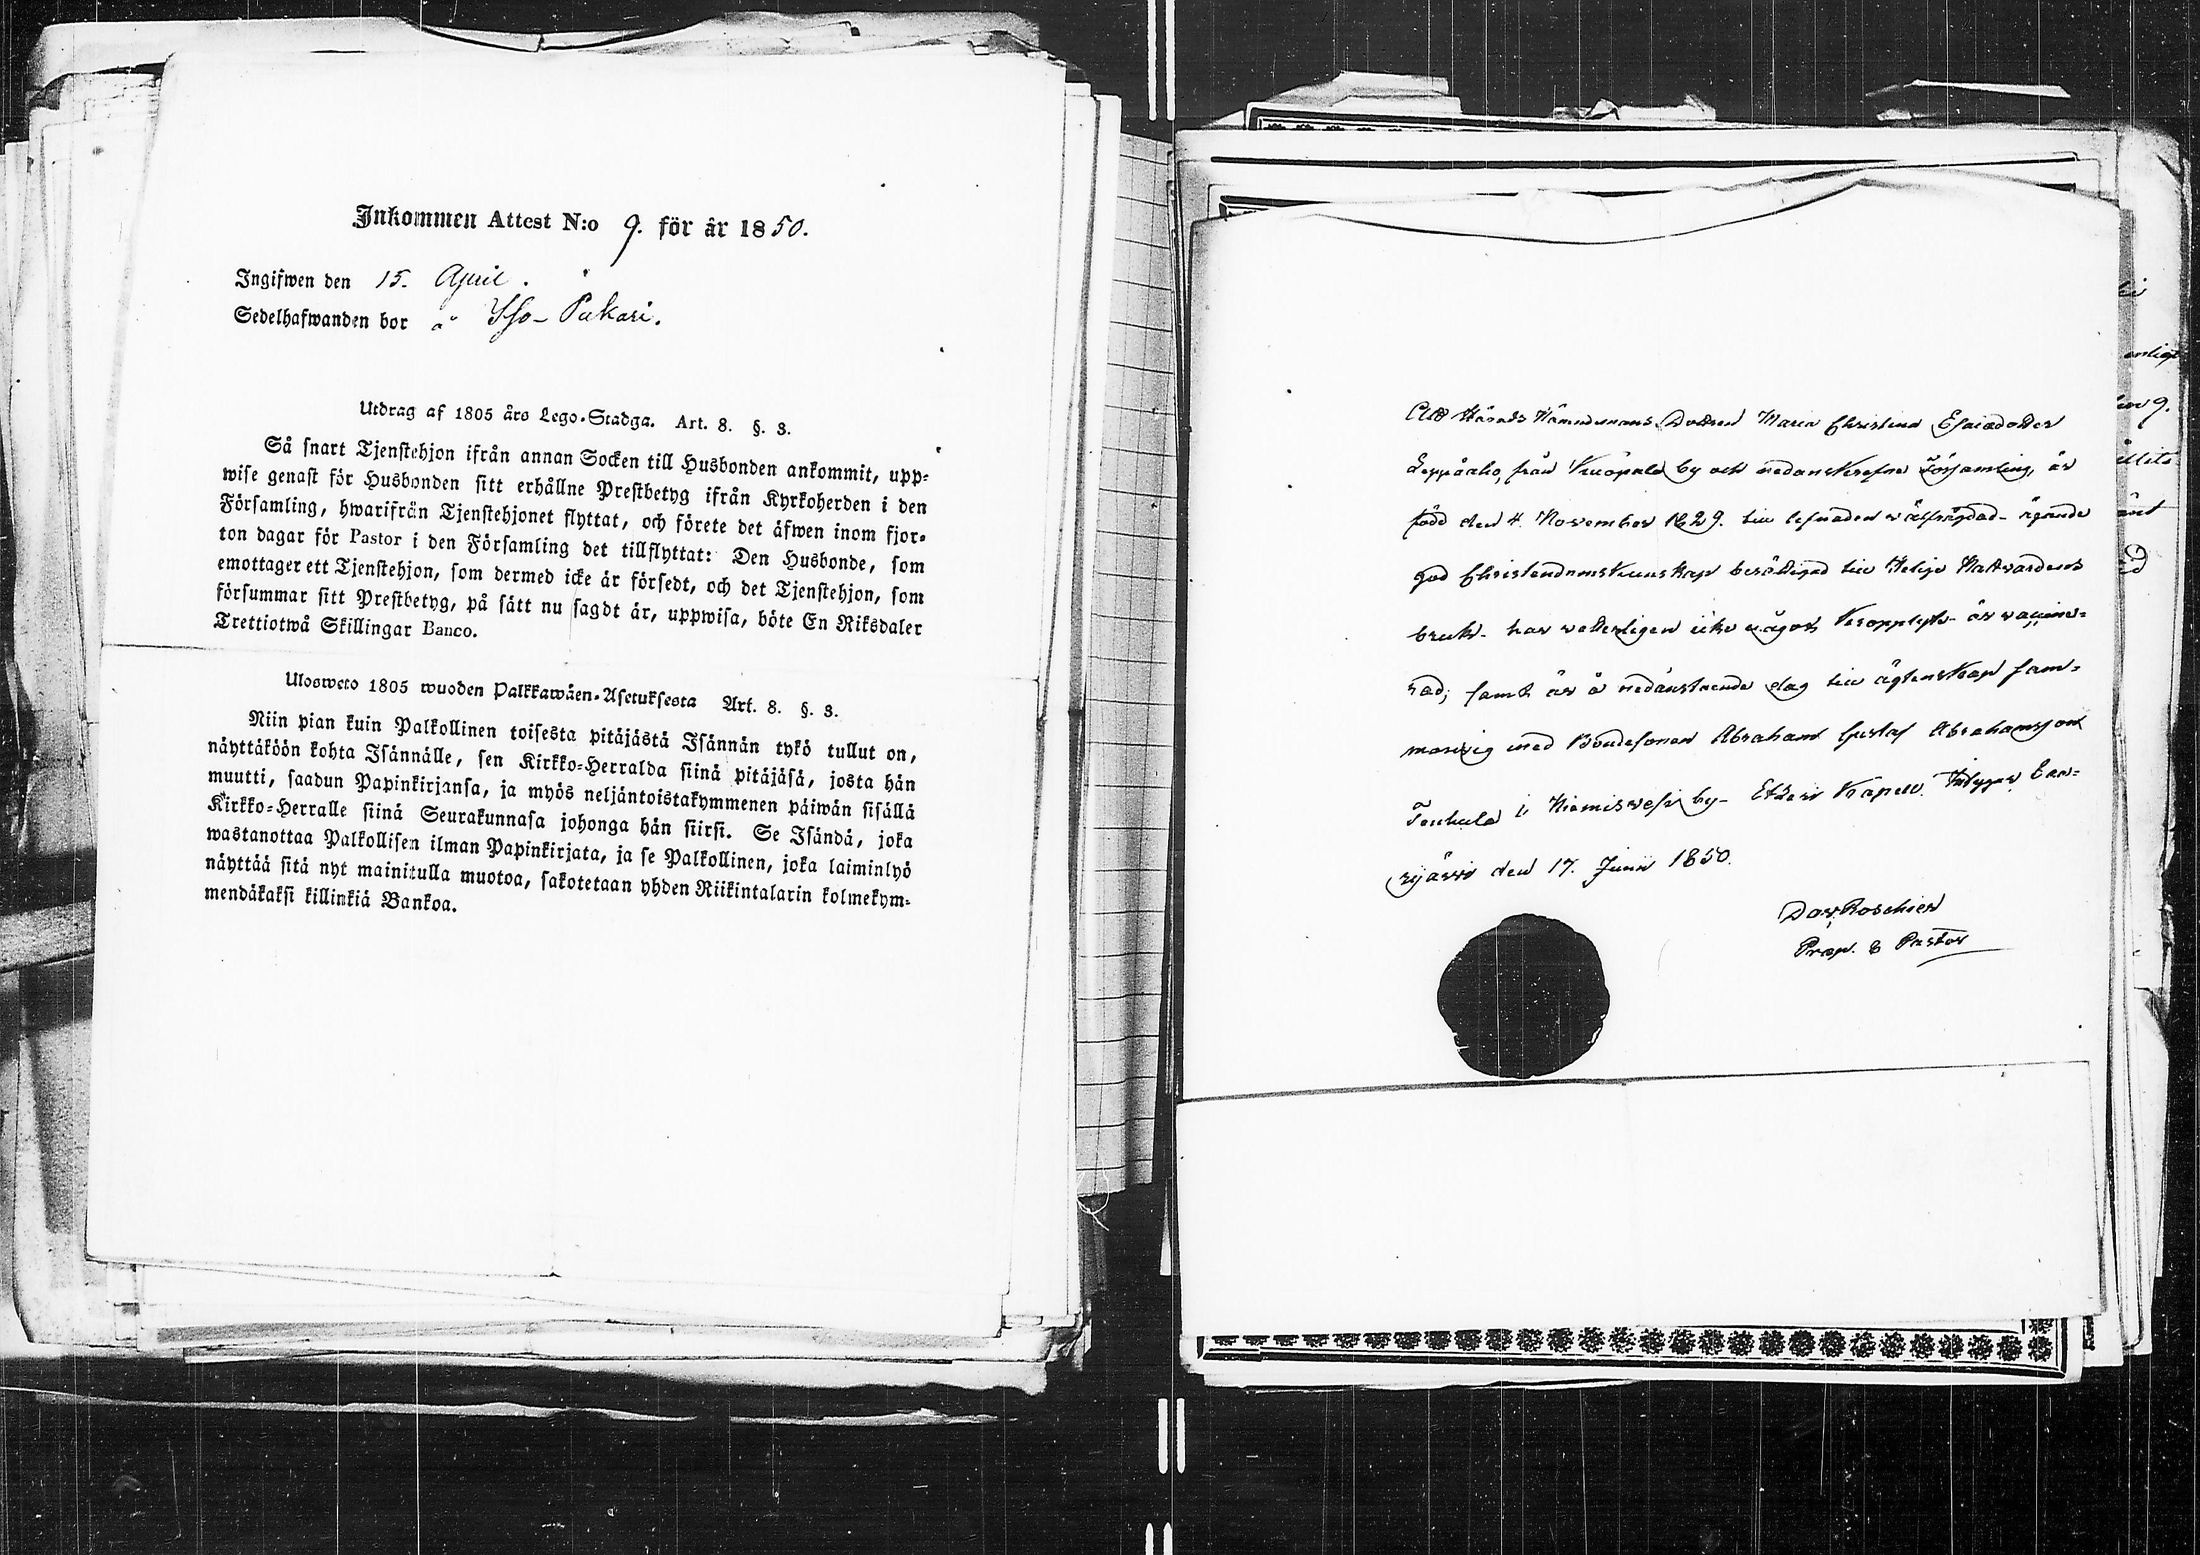 Inkommen Attest N:o 9. för år 1850.
Ingifwen den 15. April.
Sedelhafwanden bor å Iso-Pukari.
Utdrag af 1805 års Lego-Stadga. Art. 8. §. 3.
Så snart Tjenstehjon ifrån annan Socken till Husbonden ankommit, upp-
wise genast för Husbonden sitt erhållne Prestbetyg ifrån Kyrkoherden i den
Församling, hwarifrån Tjenstehjonet flyttat, och förete det äfwen inom fjor-
ton dagar för Pastor i den Församling det tillflyttat: Den Husbonde, som
emottager ett Tjenstehjon, som dermed icke är försedt, och det Tjenstehjon, som
försummar sitt Prestbetyg, på sätt nu sagdt är, uppwisa, böte En Riksdaler
Trettiotwå Skillingar Banco.
Ulosweto 1805 wuoden Palkkawäen-Asetuksesta Art. 8. §. 3.
Niin pian kuin Palkollinen toisesta pitäjästä Isännän tykö tullut on,
näyttäköön kohta Isännälle, sen Kirkko-Herralda siinä pitäjäsä, josta hän
muutti, saadun Papinkirjansa, ja myös neljäntoistakymmenen päiwän sisällä
Kirkko-Herralle siinä Seurakunnasa johonga hän siirsi. Se Isändä, joka
wastanottaa Palkollisen ilman Papinkirjata, ja se Palkollinen, joka laiminlyö
näyttää sitä nyt mainitulla muotoa, sakotetaan yhden Riikintalarin kolmekym-
mendäkaksi killinkiä Bankoa.
Att Härads Nämndemans Dottren Maria Christina Esaiædotter
Leppäaho, från Kuöpala by och nedanskrefne Församling, är
född den 4 November 1829. till lefnaden wälfrägdad - ägande
god Christendomskunskap berättigad till Helige Nattvardens
bruk - har vetterligen icke något Kropplyte - är vaccine-
rad; samt är å nedanstående dag till ägtenskap sam-
manvigd med Bondesonen Abraham Gustaf Abrahamsson
Toukula i Niemisvesi by - Etseri Kapell. Intygar Eva-
rijärvi den 17. Junii 1850.
Dav. Roschier
Prap. & Pastor